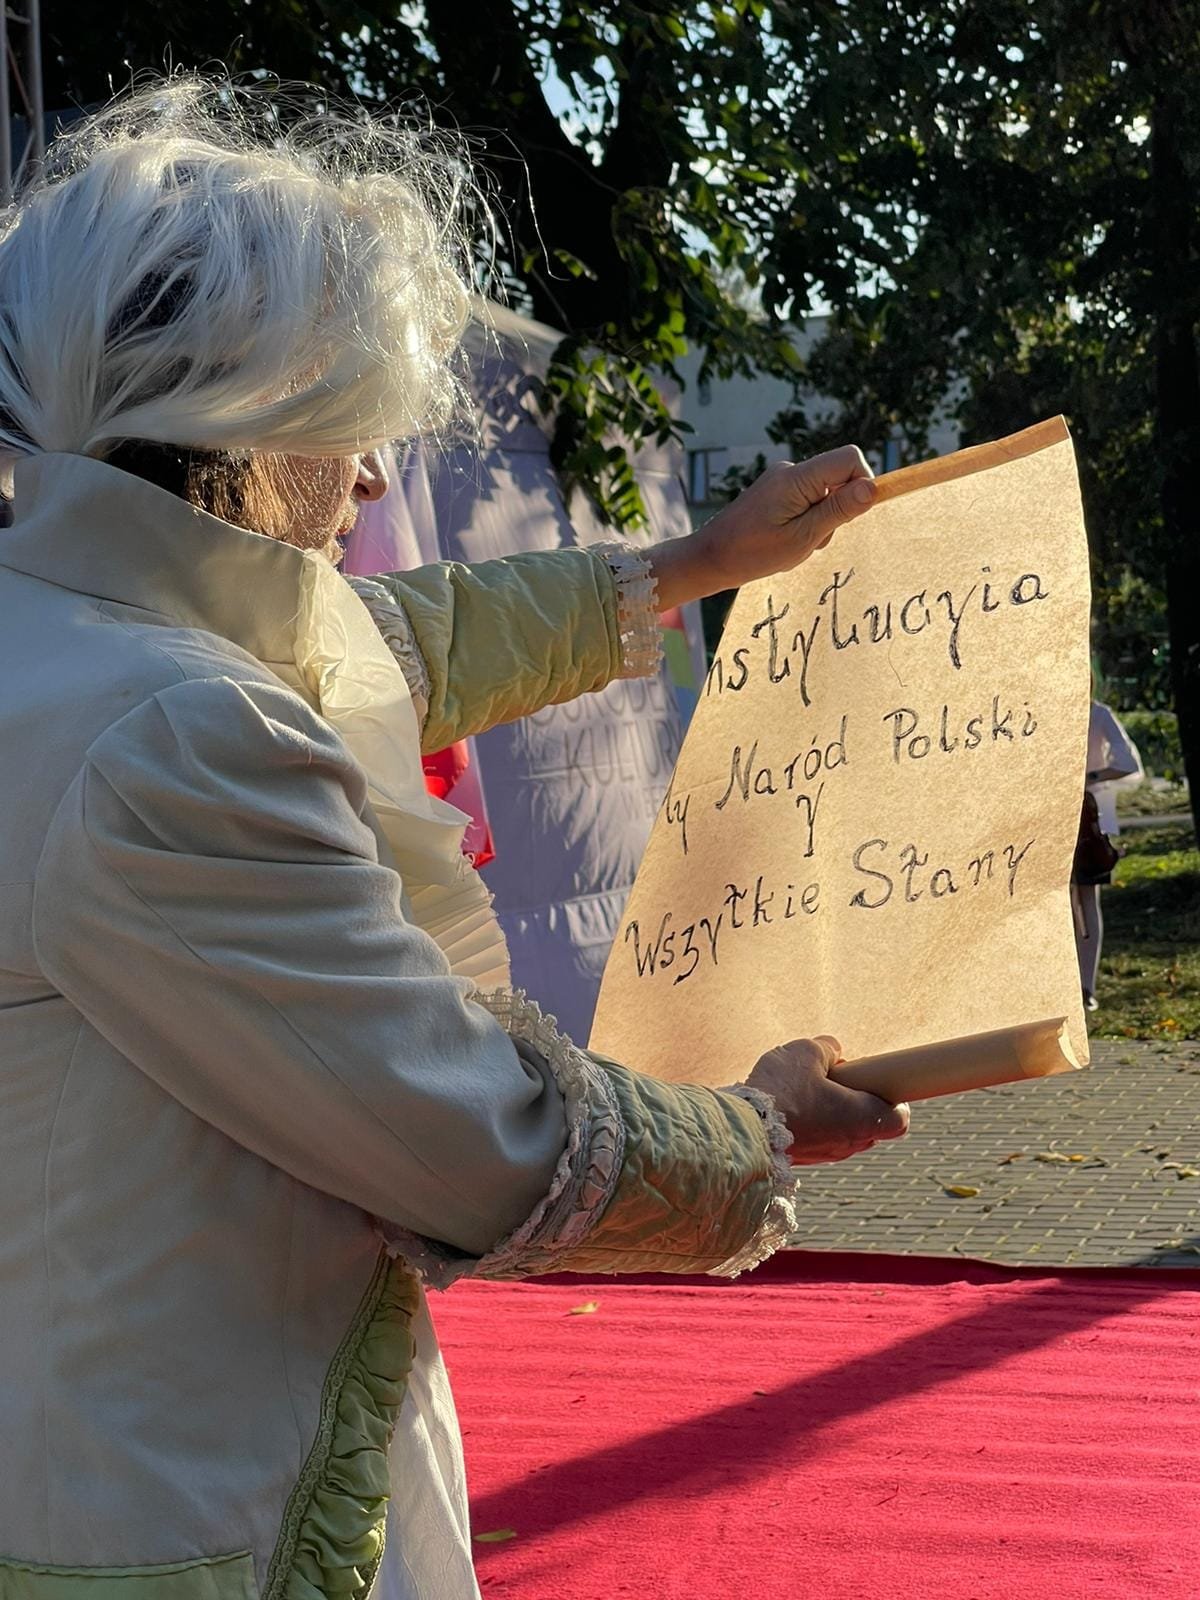 nstytucyia
ly Naród Polski
y
Wszytkie Stany
KULTURY